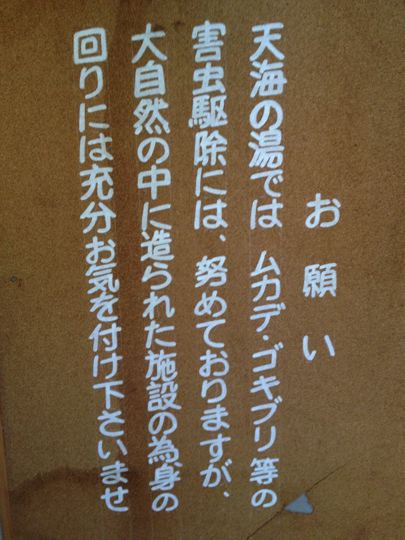 お願い
天海の湯では ムカデ・ゴキブリ等の
害虫駆除には、努めておりますが、
大自然の中に造られた施設の為身の
回りには充分お気を付け下さいませ